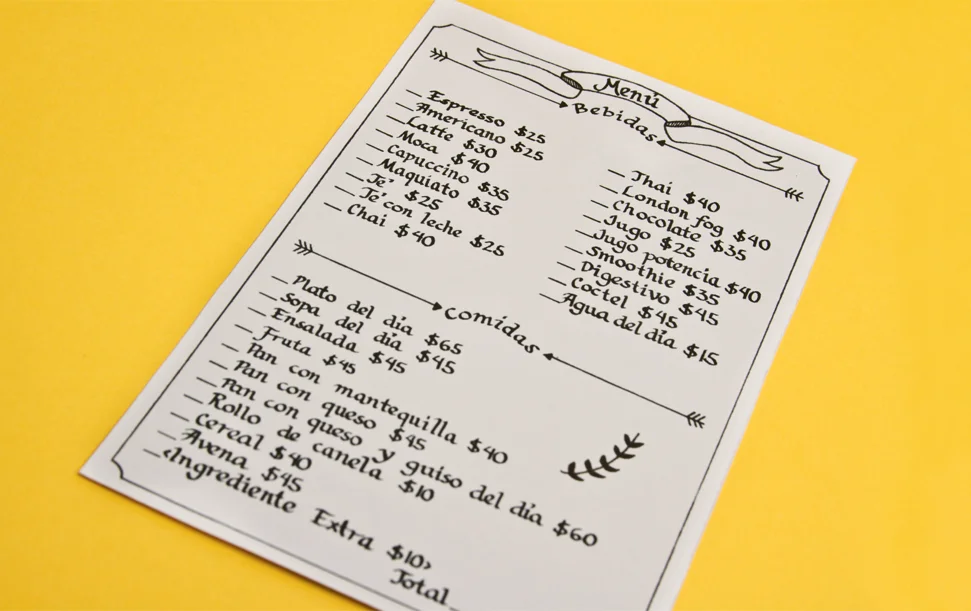 Menú
Bebidas
Espresso $25
Americano $25
Latte $30
Moca $40
Capuccino $35
Maquiato $35
Té $25
Té con leche $25
Chai $40
Thai $40
London fog $40
Chocolate $35
Jugo $25
Jugo potencia $40
Smoothie $35
Digestivo $45
Coctel $45
Agua del día $15
Comidas
Plato del día $65
Sopa del día $45
Ensalada $45
Fruta $45
Pan con mantequilla $40
Pan con queso $45
Pan con queso y guiso del día $60
Rollo de canela $10
Cereal $40
Avena $45
<Ingrediente Extra $10>
Total